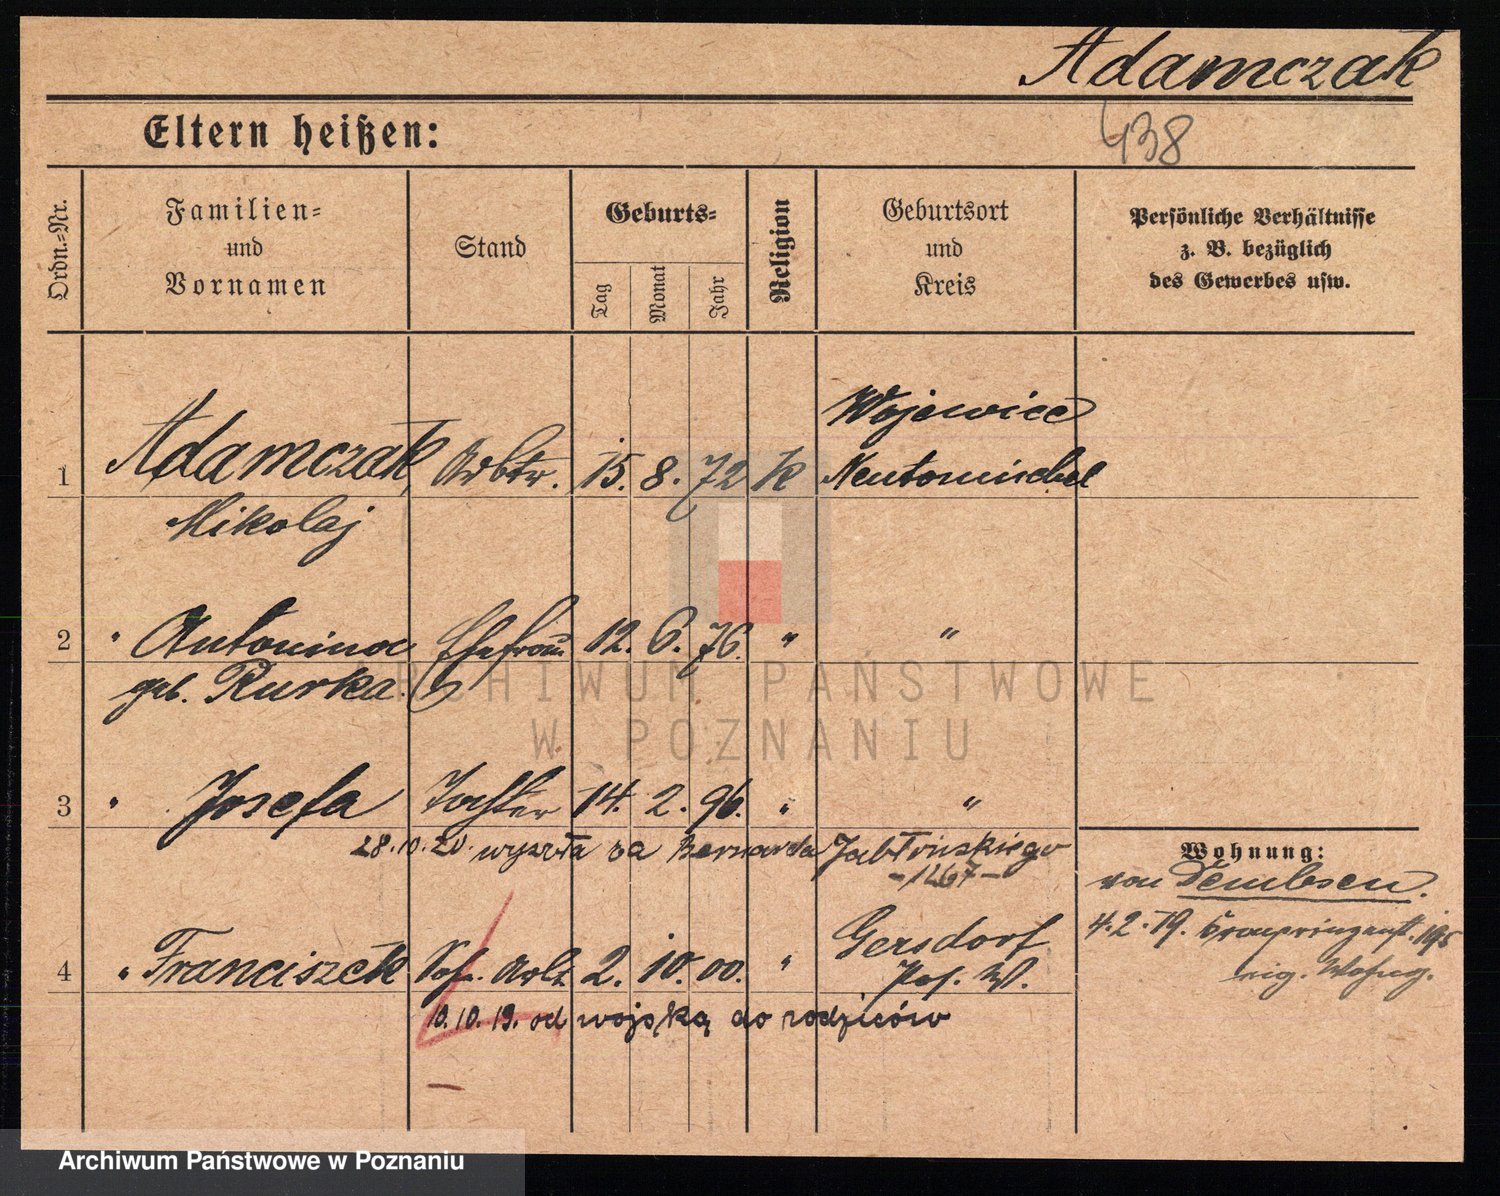 Adamczak
438
Eltern heißen:
Ordn.-Nr.
Familien- und Vornamen
Stand
Geburts-
Tag
Monat
Jahr
Religion
Geburtsort und Kreis
Persönliche Verhältnisse
z. B. bezüglich
des Gewerbes usw.
Wojewice
1 Adamczak, Arbtr. 15. 8. 72 K Neutomischel
Mikolaj
2 " Antonina Ehefrau 12. 6. 76. " "
geb. Rurka.
3 " Josefa Tochter 14. 2. 96. " "
28.10.20 wyszła za Bernarda Jabłońskiego
-1267-
Wohnung:
von Dembsen.
4.2.19.
Gersdorf
4 " Franciszek Sohn. Arb 2. 10. 00. " Pos. W.
eig. Wohng.
10.10.19. od wojska do rodziców
ARCHIWUM PAŃSTWOWE
W POZNANIU
Archiwum Państwowe w Poznaniu